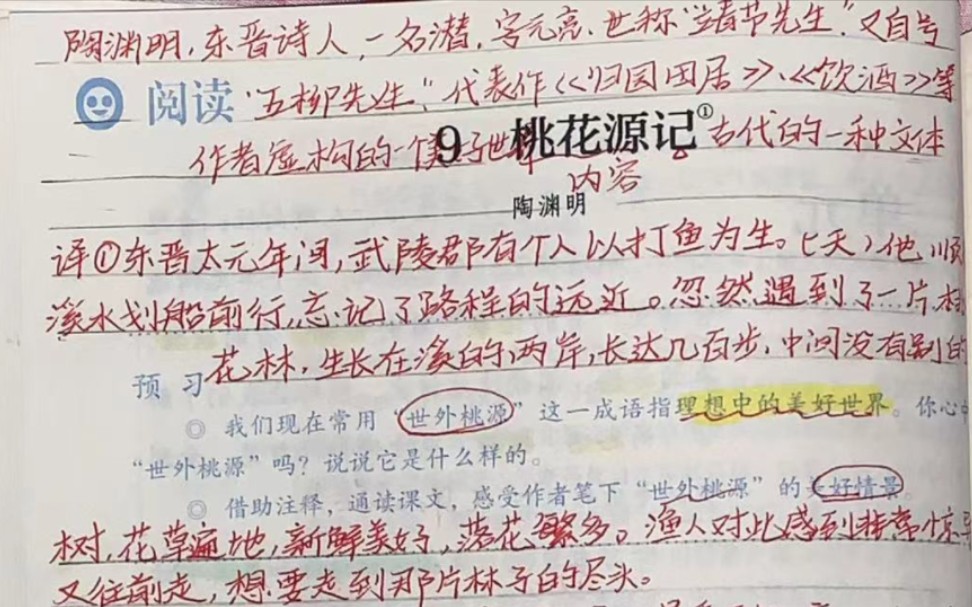 陶渊明，东晋诗人，一名潜，字元亮、世称“靖节先生”，又自号
阅读 “五柳先生”，代表作《归园田居》、《饮酒》等
作者虚构的一个美好世界 古代的一种文体
9 桃花源记①
内容
陶渊明
译①东晋太元年间，武陵郡有个人以打鱼为生。（一天）他顺
溪水划船前行，忘记了路程的远近。忽然遇到了一片桃
花林，生长在溪的两岸，长达几百步，中间没有别的
预 习
◎ 我们现在常用“世外桃源”这一成语指理想中的美好世界。你心中
“世外桃源”吗？说说它是什么样的。
◎ 借助注释，通读课文，感受作者笔下“世外桃源”的美好情景。
树，花草遍地，新鲜美好，落花繁多。渔人对此感到非常惊
又往前走，想要走到那片林子的尽头。